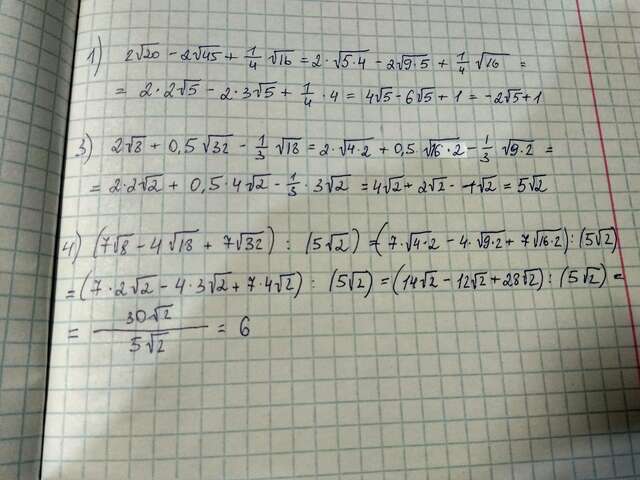 1) 2√20 - 2√45 + 1/4 √16 = 2 · √5·4 - 2√9·5 + 1/4 √16 =
= 2 · 2√5 - 2 · 3√5 + 1/4 · 4 = 4√5 - 6√5 + 1 = -2√5 + 1
3) 2√8 + 0,5√32 - 1/3 √18 = 2 · √4·2 + 0,5 · √16·2 - 1/3 √9·2 =
= 2·2√2 + 0,5·4√2 - 1/3 · 3√2 = 4√2 + 2√2 - 1√2 = 5√2
4) (7√8 - 4√18 + 7√32) : (5√2) = (7·√4·2 - 4·√9·2 + 7√16·2) : (5√2)
= (7·2√2 - 4·3√2 + 7·4√2) : (5√2) = (14√2 - 12√2 + 28√2) : (5√2) =
= 30√2/5√2 = 6